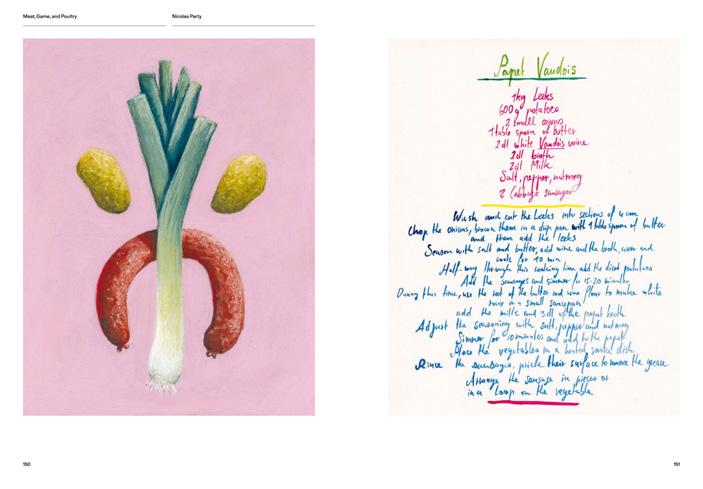 Meat, Game, and Poultry
Nicolas Party
Papet Vaudois
1kg Leeks
600g potatoes
2 small onions
1 table spoon of butter
2dl white Vaudois wine
2dl broth
2dl Milk
Salt, pepper, nutmeg
2 Cabbage sausages
Wash and cut the Leeks into sections of 4cm
Chop the onions, brown them in a deep pan with 1 table spoon of butter
and them add the leeks
Season with salt and butter, add wine and the broth, cover and
cook for 10 min
Half-way through this cooking time add the diced potatoes
Add the sausages and simmer for 15-20 minutes
During this time, use the rest of the butter and some flour to make white
roux in a small saucepan
add the milk and 3dl of the papet broth
Adjust the seasoning with salt, pepper and nutmeg
Simmer for 10 minutes and add to the papet
Place the vegetables in a heated dish
Rince the sausages, prick their surface to remove the grease
Arrange the sausage in pieces or
in a Loop on the vegetable
150
151